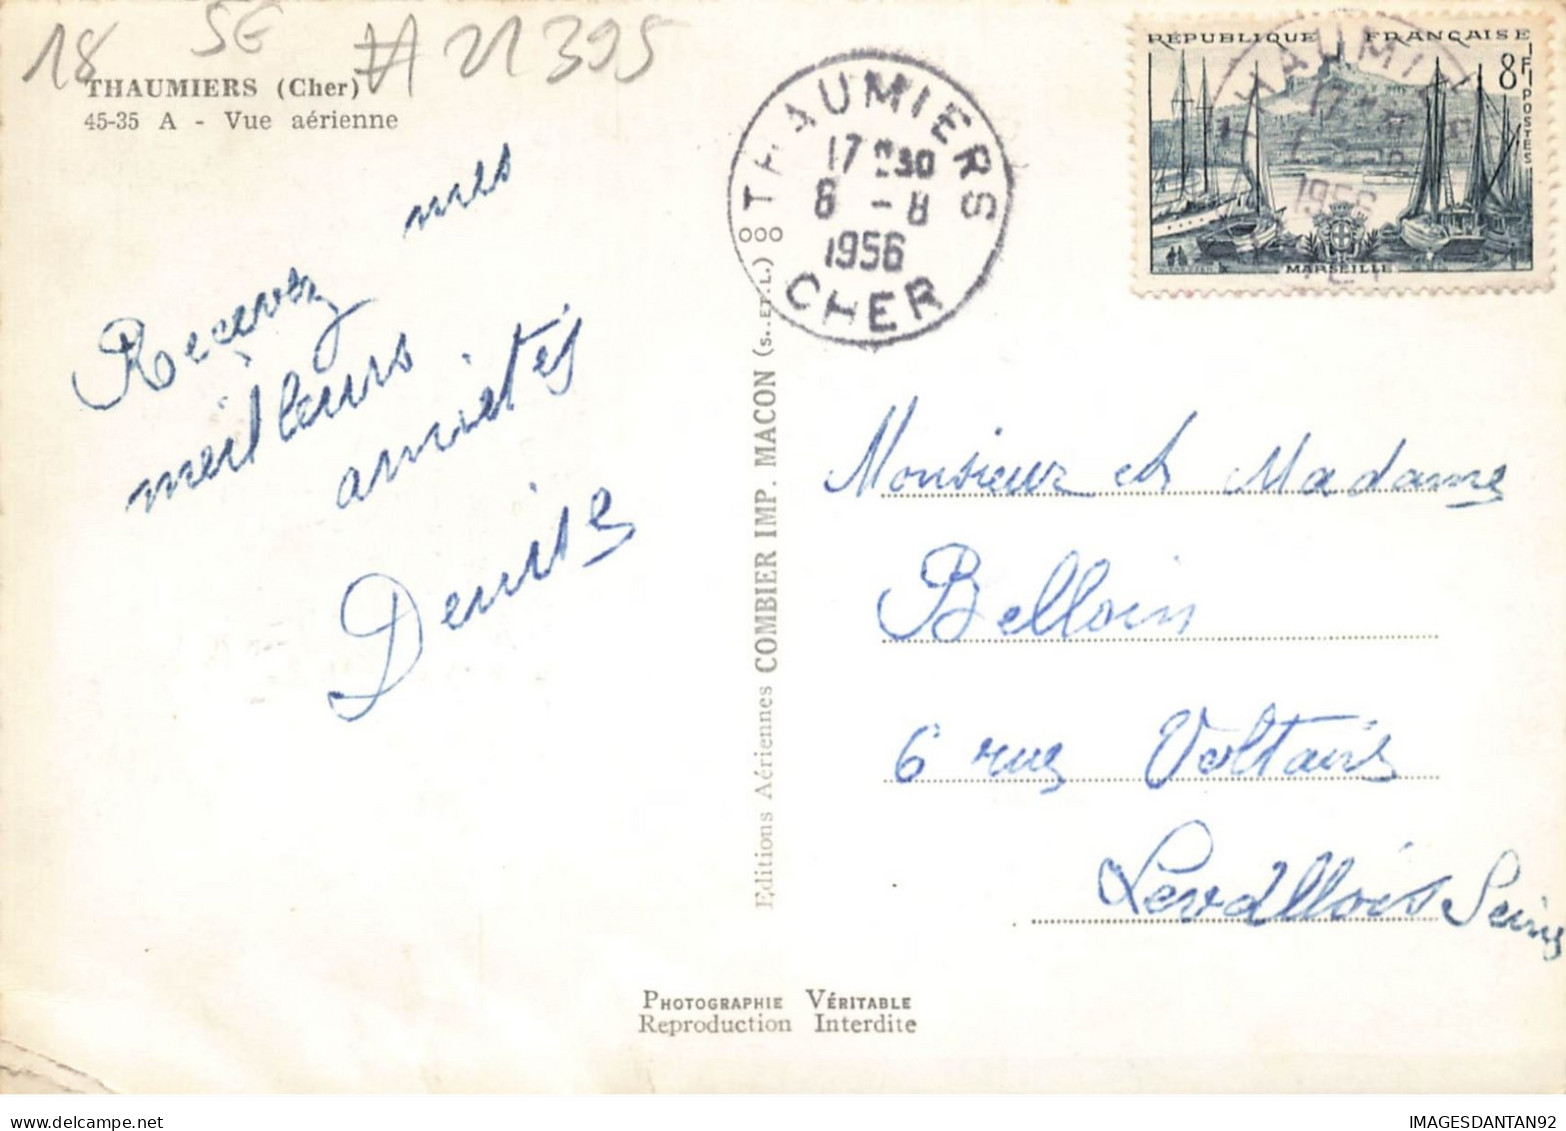 18 SE # 21395
THAUMIERS (Cher)
45-35 A - Vue aérienne
Recevez mes
meilleurs
amietés
Denise
Editions Aériennes COMBIER IMP. MACON (S.-ET-L.)
THAUMIERS
17 30
8 - 8
1956
CHER
REPUBLIQUE FRANÇAISE
8 F
POSTES
MARSEILLE
THAUMIERS
17
1956
Monsieur et Madame
Belloin
6 rue Voltaire
Levallois Seine
PHOTOGRAPHIE VÉRITABLE
Reproduction Interdite
IMAGESDANTAN92